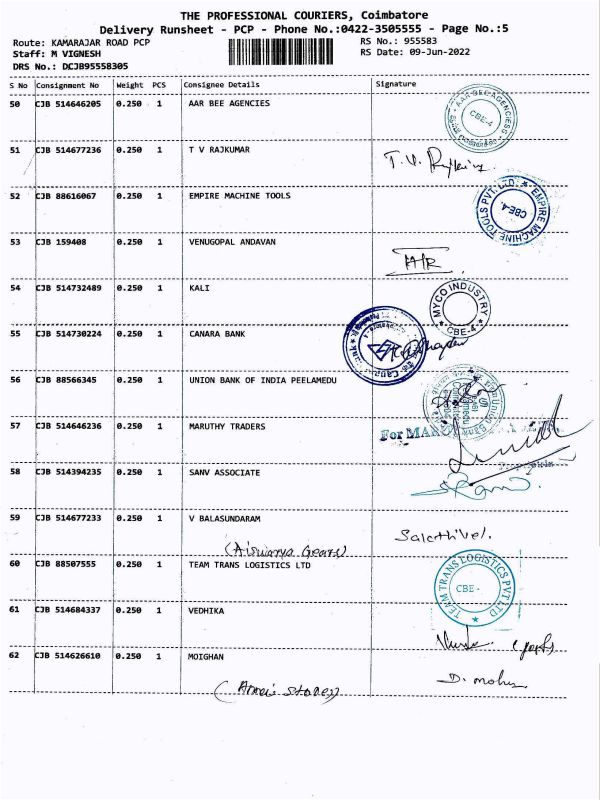 THE PROFESSIONAL COURIERS, Coimbatore
Delivery Runsheet - PCP - Phone No.:0422-3505555 - Page No.:5
Route: KAMARAJAR ROAD PCP RS No.: 955583
Staff: M VIGNESH RS Date: 09-Jun-2022
DRS No.: DCJB95558305
S No Consignment No Weight PCS Consignee Details Signature
50 CJB 514646205 0.250 1 AAR BEE AGENCIES
AAR BEE AGENCIESS CBE-4
51 CJB 514677236 0.250 1 T V RAJKUMAR
T.V. Rajkumar
52 CJB 88616067 0.250 1 EMPIRE MACHINE TOOLS
EMPIRE MACHINE TOOLS PVT. LTD. CBE-4.
53 CJB 159408 0.250 1 VENUGOPAL ANDAVAN
54 CJB 514732489 0.250 1 KALI
MYCO INDUSTRY CBE-4
55 CJB 514730224 0.250 1 CANARA BANK
56 CJB 88566345 0.250 1 UNION BANK OF INDIA PEELAMEDU
Union Bank
57 CJB 514646236 0.250 1 MARUTHY TRADERS
For
58 CJB 514394235 0.250 1 SANV ASSOCIATE
59 CJB 514677233 0.250 1 V BALASUNDARAM
Sakthivel.
(Aiswarya Gears)
60 CJB 88507555 0.250 1 TEAM TRANS LOGISTICS LTD
TEAM TRANS LOGISTICS PVT LTD CBE -
61 CJB 514684337 0.250 1 VEDHIKA
62 CJB 514626610 0.250 1 MOIGHAN
D. mohan
Stores)